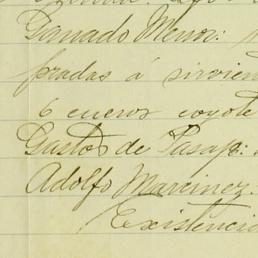 Ganado Menor:
pradas á sirvien
6 cueros coyote
Gustos de Pasaj:
Adolfo Marcinez.
Existencia